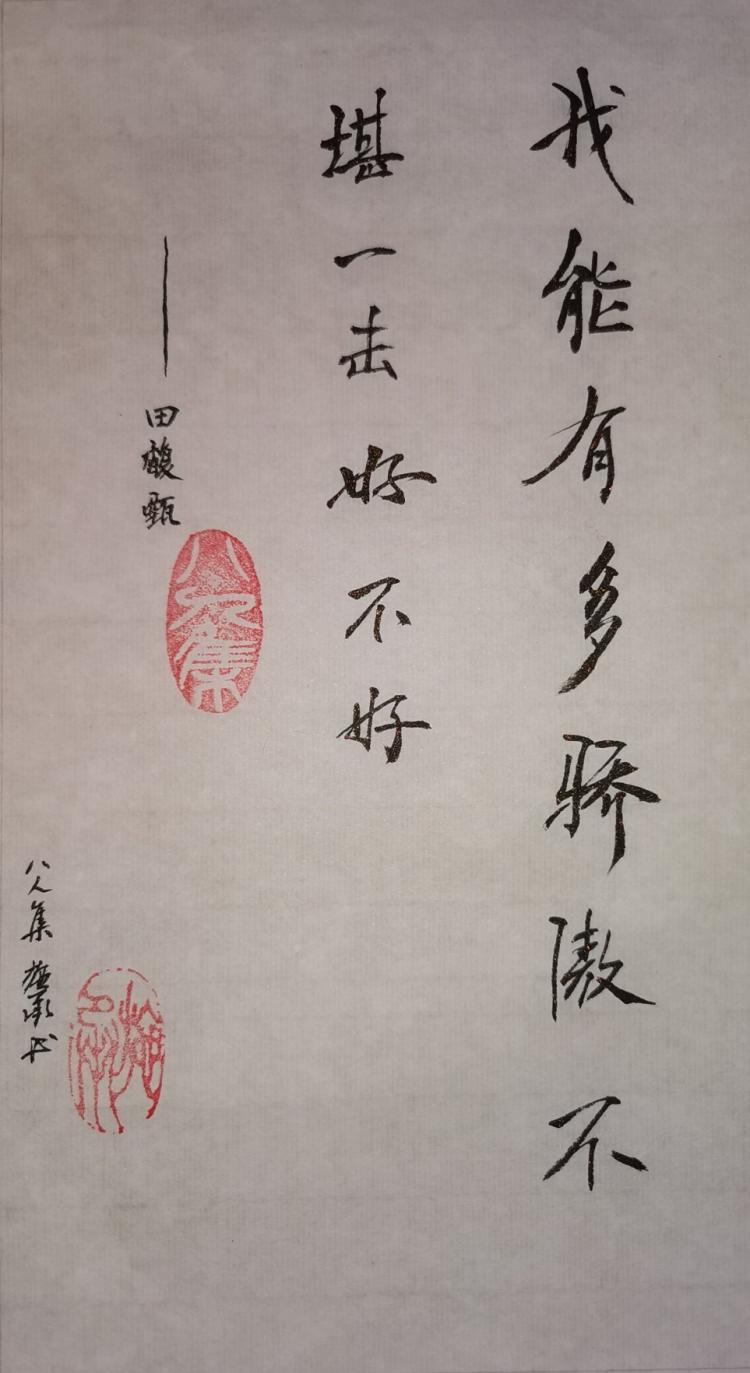 我能有多骄傲不
堪一击好不好
——田馥甄
八人集